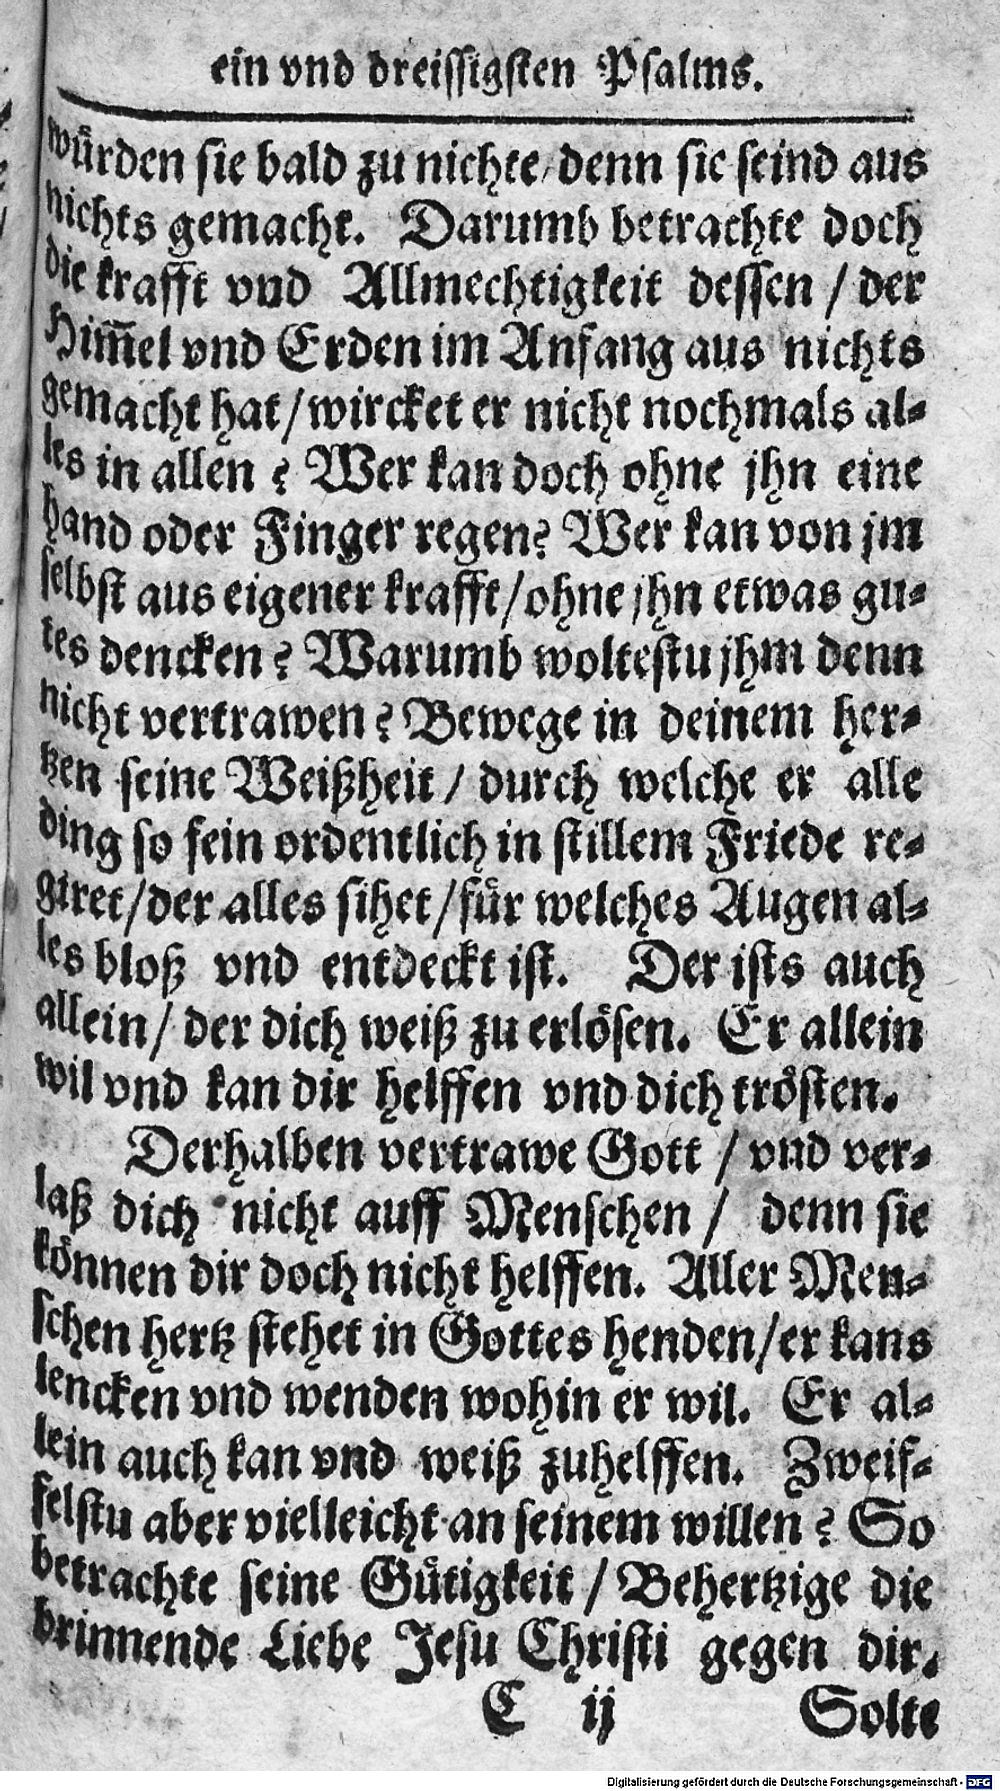 ein vnd dreissigsten Psalms.
wuͤrden sie bald zu nichte/denn sie seind aus
nichts gemacht. Darumb betrachte doch
die krafft vnd Allmechtigkeit dessen / der
Him̃el vnd Erden im Anfang aus nichts
gemacht hat/wircket er nicht nochmals al-
les in allen ? Wer kan doch ohne jhn eine
hand oder Finger regen? Wer kan von jm
selbst aus eigener krafft/ohne jhn etwas gu-
tes dencken ? Warumb woltestu jhm denn
nicht vertrawen ? Bewege in deinem her-
tzen seine Weißheit / durch welche er alle
ding so fein ordentlich in stillem Friede re-
giret/der alles sihet/fuͤr welches Augen al-
les bloß vnd entdeckt ist. Der ists auch
allein/ der dich weiß zu erloͤsen. Er allein
wil vnd kan dir helffen vnd dich troͤsten.
Derhalben vertrawe Gott / vnd ver-
laß dich nicht auff Menschen / denn sie
koͤnnen dir doch nicht helffen. Aller Men-
schen hertz stehet in Gottes henden/er kans
lencken vnd wenden wohin er wil. Er al-
lein auch kan vnd weiß zuhelffen. Zweif-
felstu aber vielleicht an seinem willen ? So
betrachte seine Guͤtigkeit / Behertzige die
brinnende Liebe Jesu Christi gegen dir.
C ij Solte
Digitalisierung gefördert durch die Deutsche Forschungsgemeinschaft - DFG